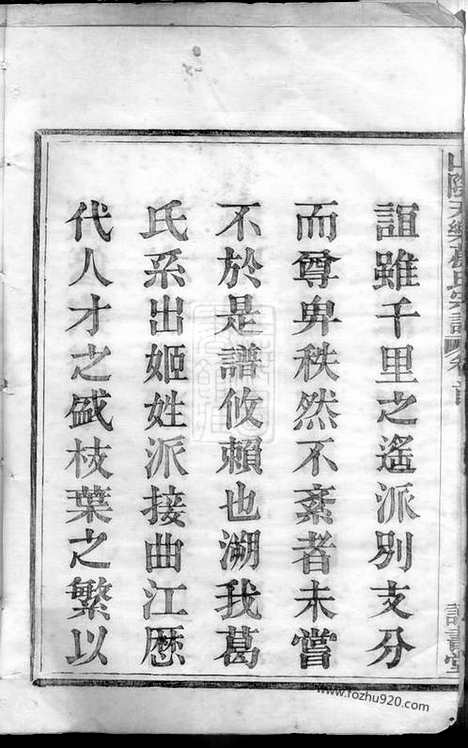 誼雖千里之遙派別支分
而尊卑秩然不紊者未嘗
不於是譜攸賴也溯我葛
氏系出姬姓派接曲江歷
代人才之盛枝葉之繁以
www.fozhu920.com